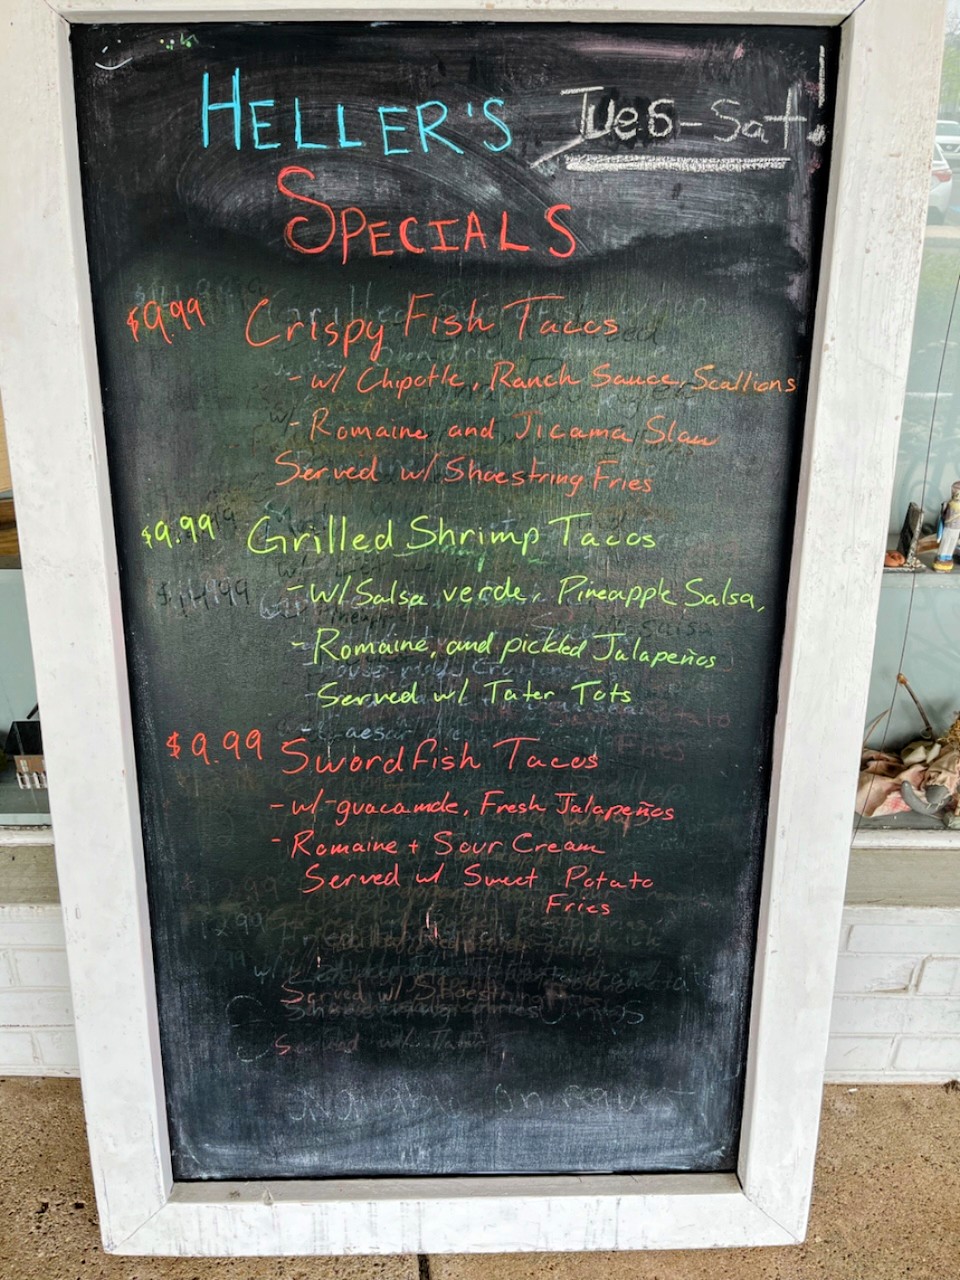 HELLER'S Tues-Sat.
SPECIALS
$9.99 Crispy Fish Tacos
- w/ Chipotle, Ranch Sauce, Scallions
- Romaine and Jicama Slaw
Served w/ Shoestring Fries
$9.99 Grilled Shrimp Tacos
- w/ Salsa verde, Pineapple Salsa,
- Romaine, and pickled Jalapeños
- Served w/ Tater Tots
$9.99 Swordfish Tacos
- w/ guacamole, Fresh Jalapeños
- Romaine + Sour Cream
Served w/ Sweet Potato
Fries
Served w/ Shoestring